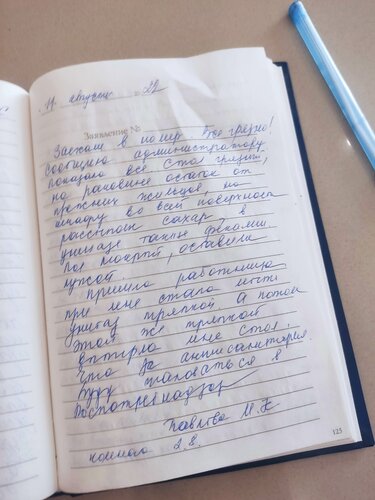 17 августа 22
Заявление №
Заехали в номер. Все грязно!
Сообщила администратору
показала все стол грязный,
на раковине остатки от
прежних жильцов, по
шкафу во всей поверхности
рассыпан сахар, в
унитазе такие фекалии.
Пол мокрый, оставили
лужой.
Пришла работница
при мне стала мыть
унитаз тряпкой. А потом
этой же тряпкой
вытирла мне стол.
Что за антисанитария.
Буду жаловаться в
Роспотребнадзор
Павлова М.К
комната 2.8.
125